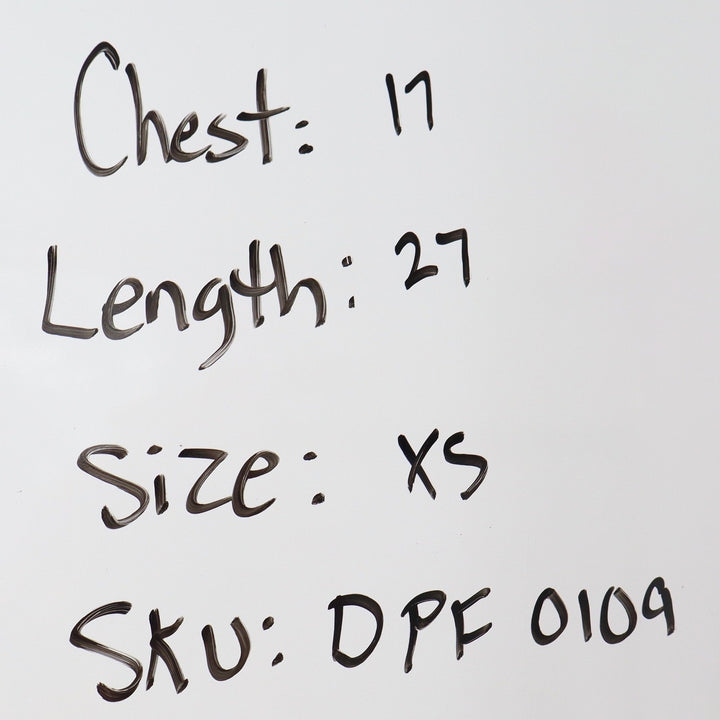 Chest: 17
Length: 27
Size: XS
SKU: DPF 0109